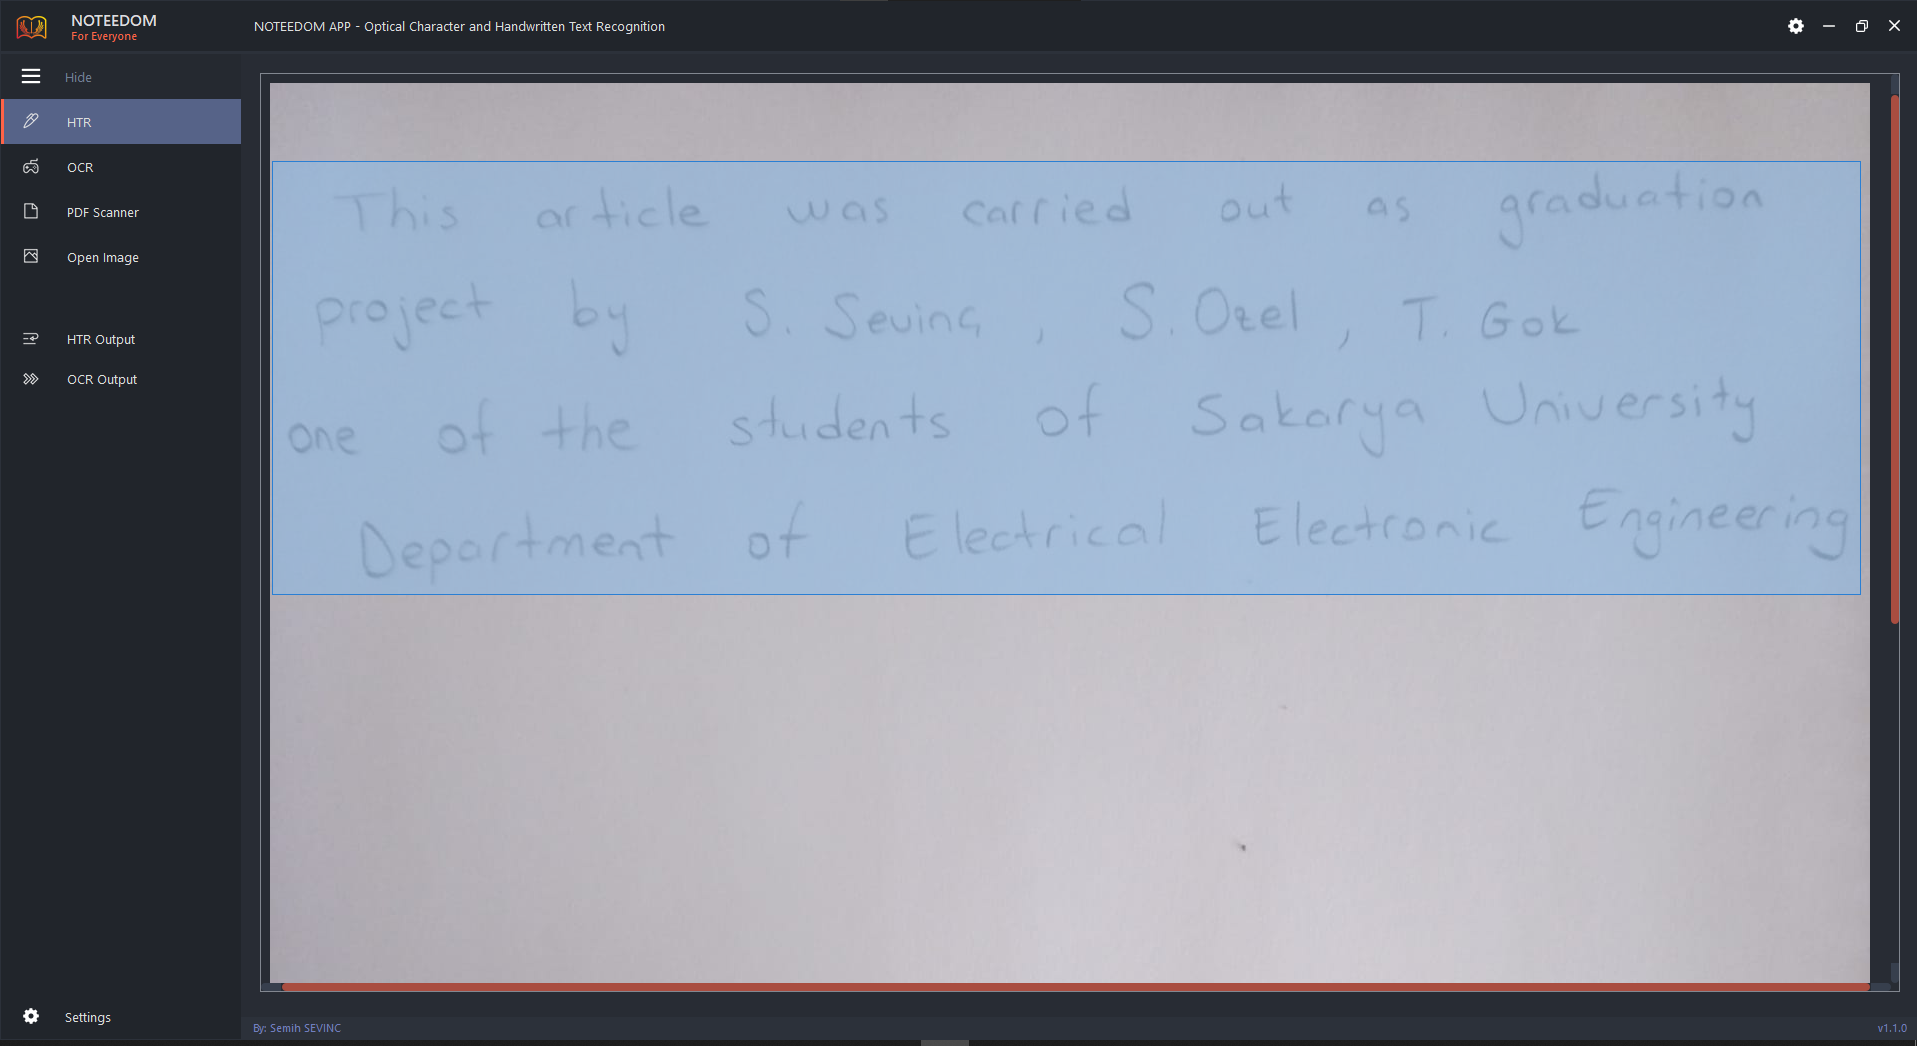 NOTEEDOM
For Everyone
NOTEEDOM APP - Optical Character and Handwritten Text Recognition
Hide
HTR
OCR
PDF Scanner
Open Image
HTR Output
OCR Output
Settings
This article was carried out as graduation
project by S. Sevinç, S. Ozel, T. Gok
one of the students of Sakarya University
Department of Electrical Electronic Engineering
By: Semih SEVINC
v1.1.0